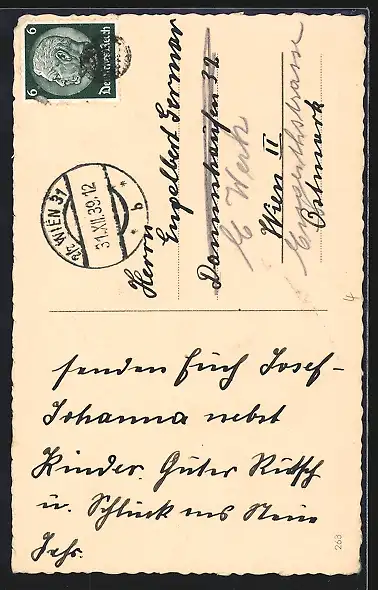 senden Euch Josef-
Johanna nebst
Kinder. Guter Rutsch
u. Schluck ins Neue
Jahr.
Herrn
Engelbert Germar
32
b/ Werk
Wien II
Ostmark
6
6
Deutsches Reich
WIEN 31
31.XII.39.12
* b *
4
268